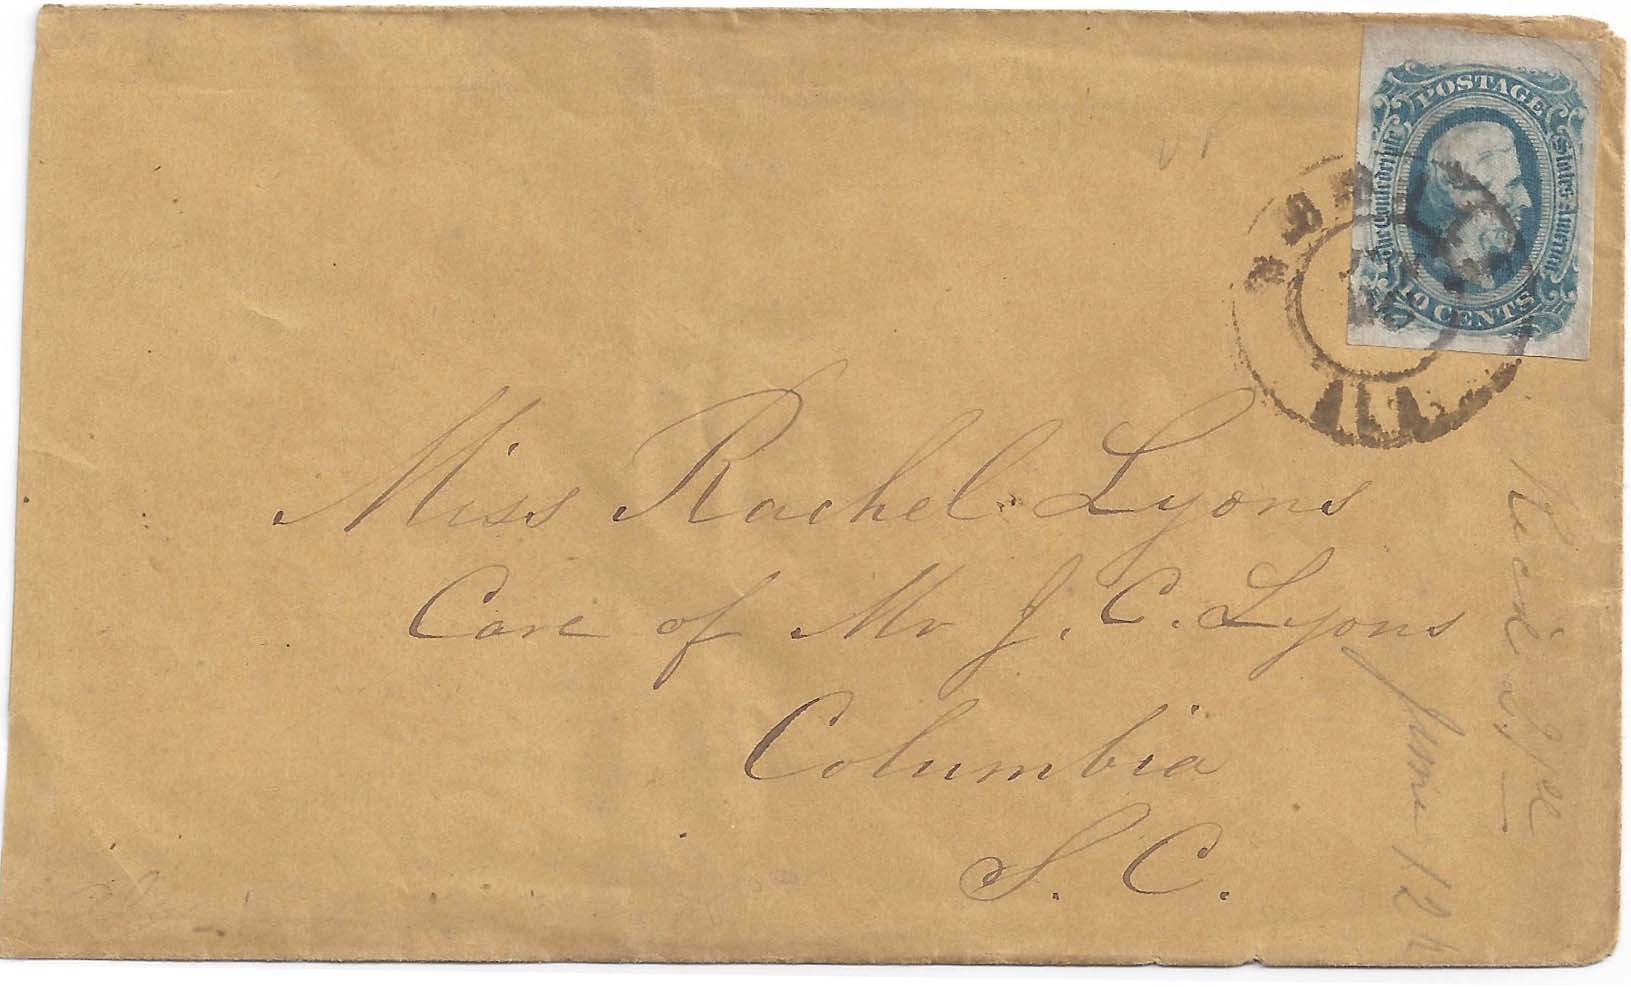 POSTAGE
The Confederate States of America
10 CENTS
ALA
Miss Rachel Lyons
Care of Mr J. C. Lyons
Columbia
S. C.
June 12